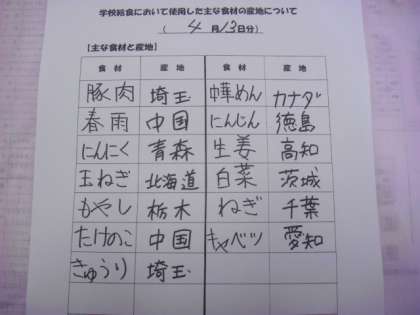 学校給食において使用した主な食材の産地について
( 4月13日分)
【主な食材と産地】
食材 産地 食材 産地
豚肉 埼玉 中華めん カナダ
春雨 中国 にんじん 徳島
にんにく 青森 生姜 高知
玉ねぎ 北海道 白菜 茨城
もやし 栃木 ねぎ 千葉
たけのこ 中国 キャベツ 愛知
きゅうり 埼玉